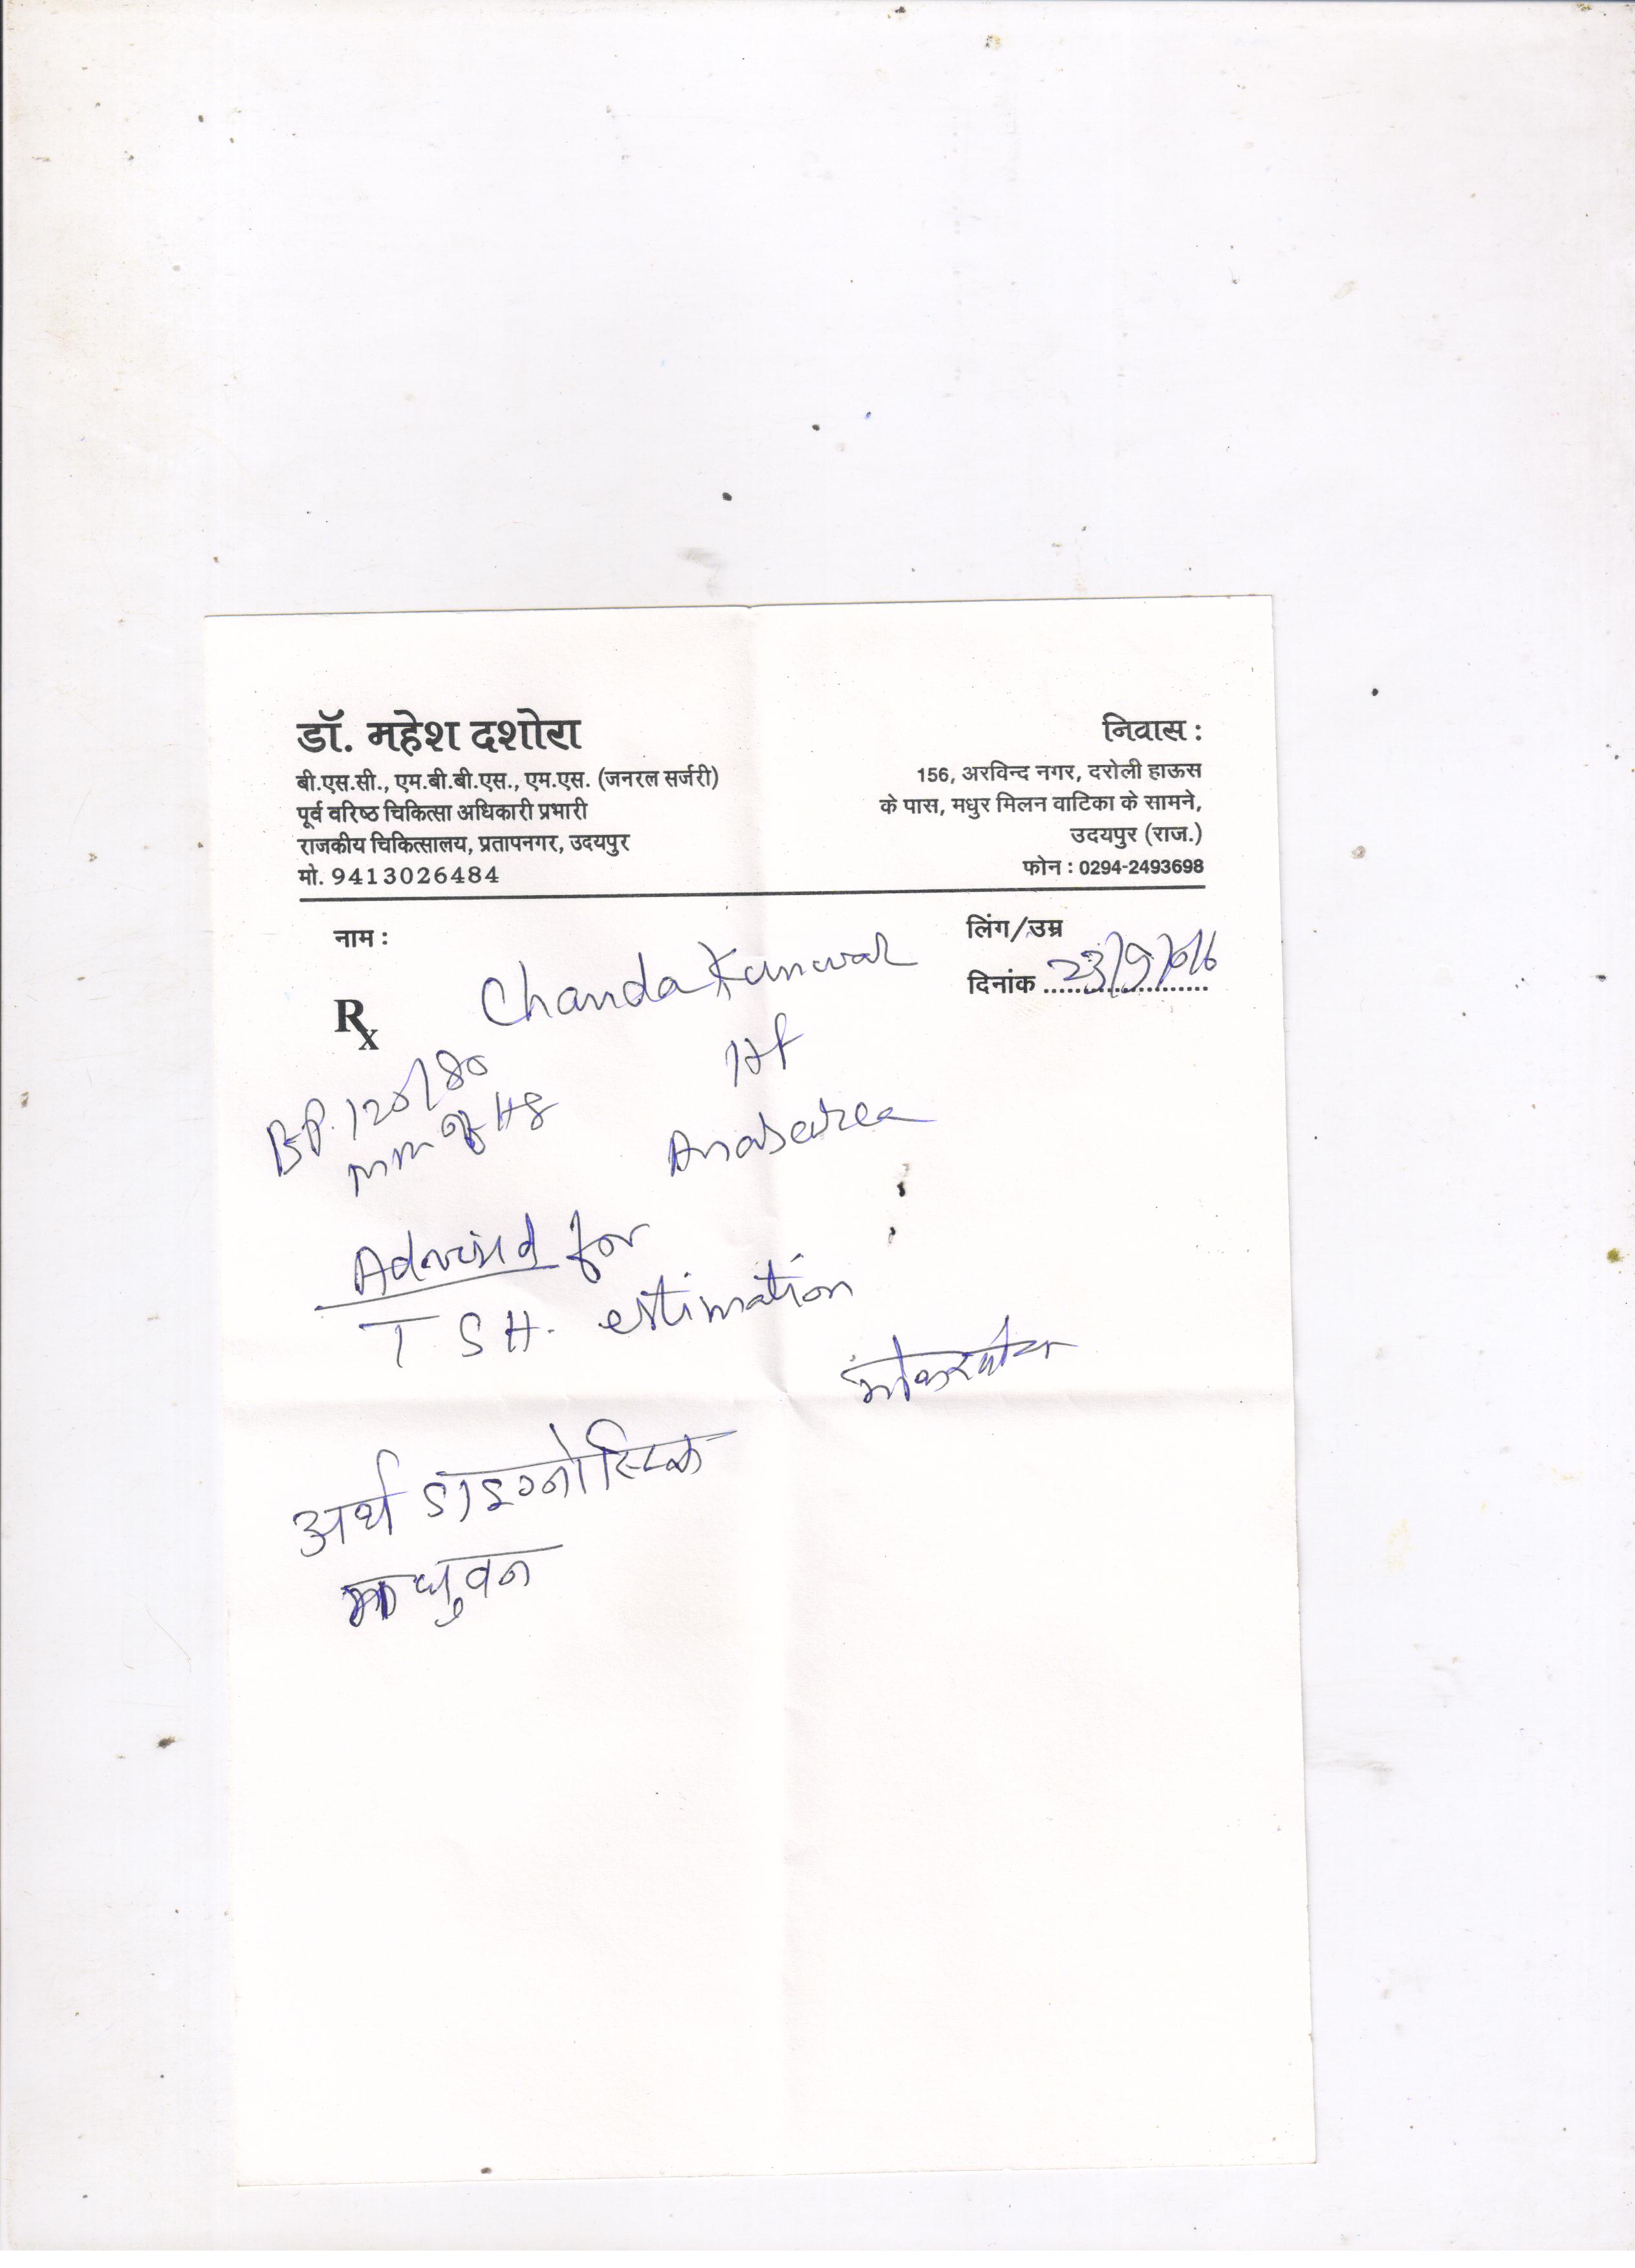 डॉ. महेश दशोरा
बी.एस.सी., एम.बी.बी.एस., एम.एस. (जनरल सर्जरी)
पूर्व वरिष्ठ चिकित्सा अधिकारी प्रभारी
राजकीय चिकित्सालय, प्रतापनगर, उदयपुर
मो. 9413026484
निवास :
156, अरविन्द नगर, दरोली हाऊस
के पास, मधुर मिलन वाटिका के सामने,
उदयपुर (राज.)
फोन : 0294-2493698
नाम :
Chanda Kanwar
लिंग/उम्र
दिनांक
Rx
BP. 120/80
mm of Hg
Advised for
T S H. estimation
अर्थ डाइग्नोस्टिक
मधुवन